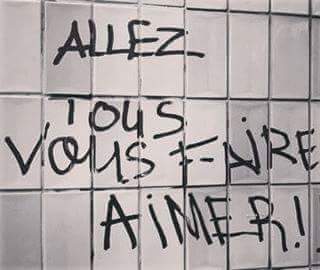 ALLEZ
TOUS
VOUS FAIRE
AIMER!